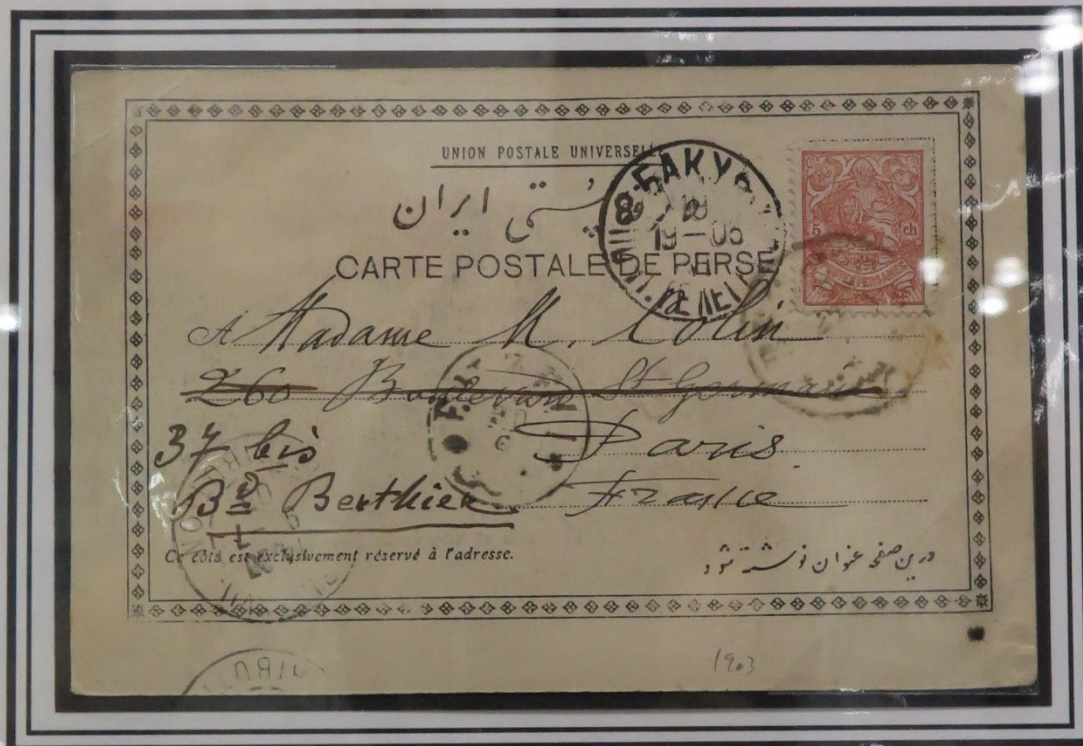 UNION POSTALE UNIVERSELLE
پُستی ایران
CARTE POSTALE DE PERSE
БАКУ
19
19—05
5 ch
A Madame M. Colin
260 Boulevard St Germain
Paris
37 bis
Bd Berthier
France
Ce côté est exclusivement réservé à l'adresse.
درین صفحه عنوان نوشته شود
1903